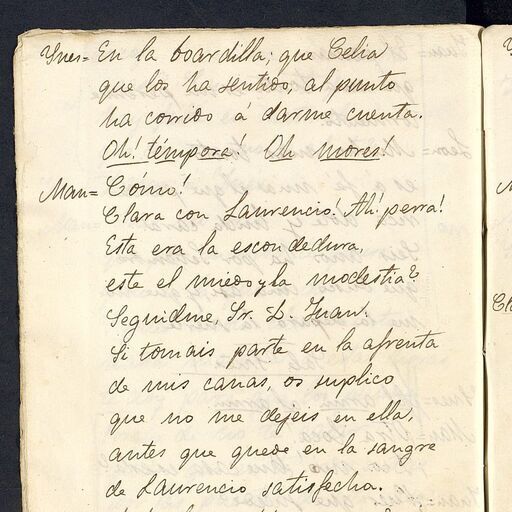 Ynes= En la boardilla; que Celia
que los ha sentido, al punto
ha corrido á darme cuenta.
Oh! témpora! Oh mores!
Man= Cómo!
Clara con Laurencio! Ah! perra!
Esta era la escondedura,
este el miedo y la modestia?
Seguidme, Sr. D. Juan.
Si tomais parte en la afrenta
de mis canas, os suplico
que no me dejeis en ella,
antes que quede en la sangre
de Laurencio satisfecha.